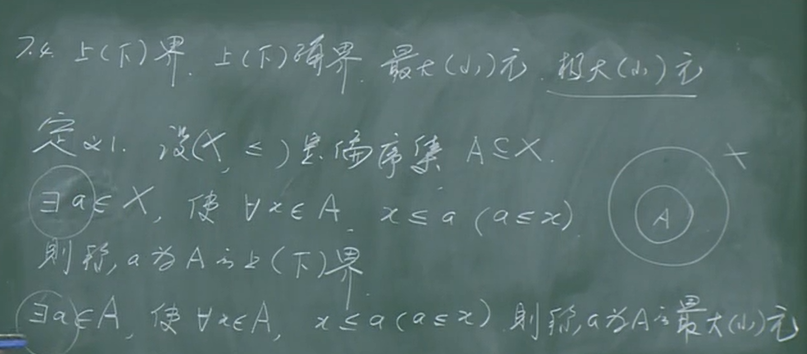 7.4. 上(下)界. 上(下)确界. 最大(小)元. 极大(小)元
定义1. 设(X, ≤)是偏序集 A⊆X.
∃a∈X, 使 ∀x∈A, x≤a (a≤x)
则称a为A之上(下)界.
∃a∈A, 使 ∀x∈A, x≤a (a≤x) 则称a为A之最大(小)元
X
A